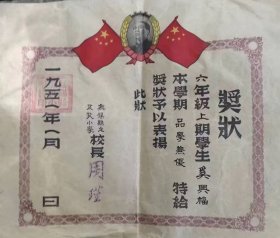 獎狀
六年級上期學生吳興福
本學期品學兼優特給
獎狀予以表揚
此狀
校長周
一九五八年八月 日